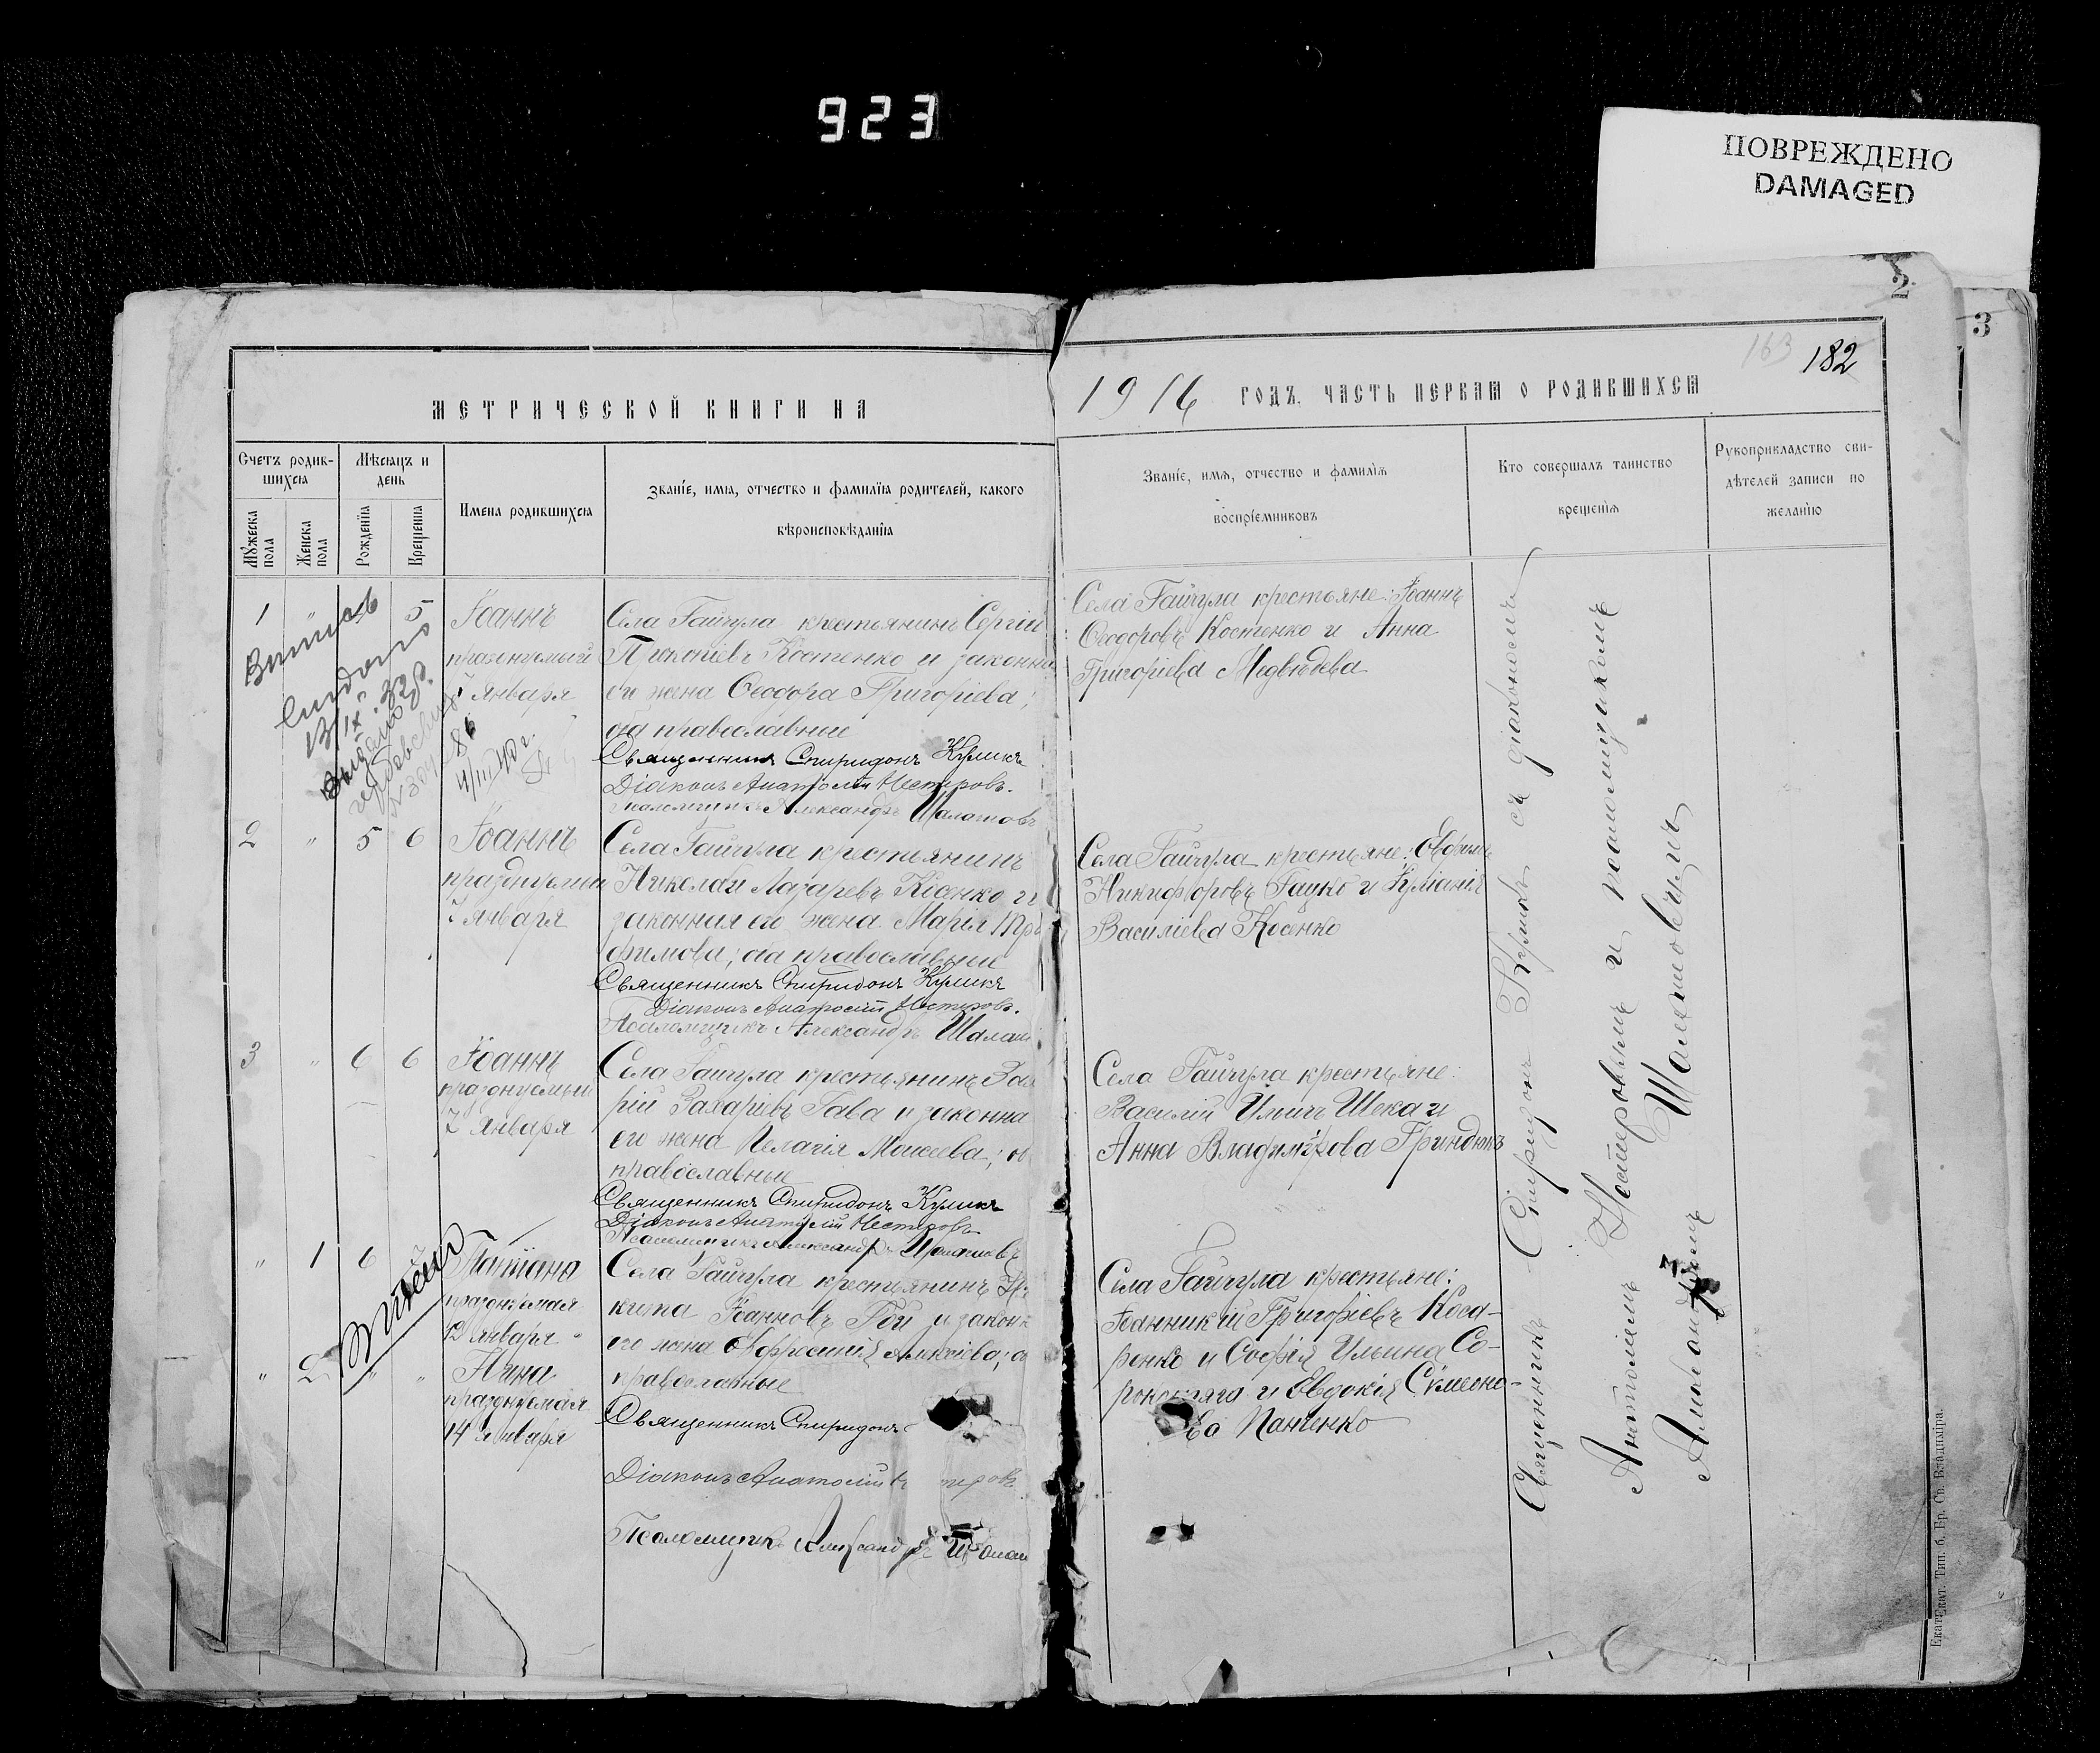 923
ПОВРЕЖДЕНО
DAMAGED
2
3
163 182
МЕТРИЧЕСКОЙ КНИГИ НА
1916 ГОДЪ, ЧАСТЬ ПЕРВАЯ О РОДИВШИХСЯ
Счетъ родив-
шихся
Мѣсяцъ и
день
Мужеска
пола
Женска
пола
Рожденїя
Крещенїя
Имена родившихся
Званїе, имя, отчество и фамилїя родителей, какого
вѣроисповѣданїя
Званїе, имя, отчество и фамилїя
воспрїемниковъ
Кто совершалъ таинство
крещенїя
Рукоприкладство сви-
дѣтелей записи по
желанїю
1 " 5
Іоаннъ
празнуемый
января
Села Гайчула крестьянинъ Сергій
Прокопіевъ Костенко и законная
его жена Ѳеодора Григоріева;
оба православные
Священникъ Спиридонъ Куликъ
Діаконъ Анатолій Нестеровъ.
Псаломщикъ Александръ Шаматовъ
Села Гайчула крестьяне: Іоаннъ
Ѳеодоровъ Костенко и Анна
Григоріева Медвѣдева
4/III 40 г.
2 " 5 6
Іоаннъ
празднуемый
7 января
Села Гайчула крестьянинъ
Николай Лазаревъ Косенко и
законная его жена Марія Тро
фимова; оба православные
Священникъ Спиридонъ Куликъ
Діаконъ Анатолій Нестеровъ.
Псаломщикъ Александръ
Села Гайчула крестьяне: Евфимъ
Никифоровъ Гацко и Іуліанія
Василіева Косенко
3 " 6 6
Іоаннъ
празднуемый
7 января
Села Гайчула крестьянинъ
рій Захаріевъ Гава и законна
его жена Пелагія Моисеева; об
православные
Священникъ Спиридонъ Куликъ
Діаконъ Анатолій Нестеровъ
Псаломщикъ Александръ
Села Гайчула крестьяне:
Василій Ильинъ Шека и
Анна Владимірова Гриндюкъ
" 1 6
Татіана
празднуемая
12 января
Села Гайчула крестьянинъ Ни
кита Іоанновъ Гой и законн
его жена Евфросинія Алексіева; о
православные
Священникъ Спиридонъ
Діаконъ Анатолій Не теровъ
Псаломщикъ Александръ
Села Гайчула крестьяне:
Іоанникій Григоріевъ Коса-
ренко и Софія Ильина Со-
рокотяга и Евдокія Сѵмеоно-
ва Панченко
" 2 " "
Нина
празднуемая
14 января
Священникъ Спиридонъ Куликъ съ діакономъ
Анатоліемъ Нестеровымъ и псаломщикомъ
Александромъ
Екат. Тип. б. Бр. Св. Владиміра.